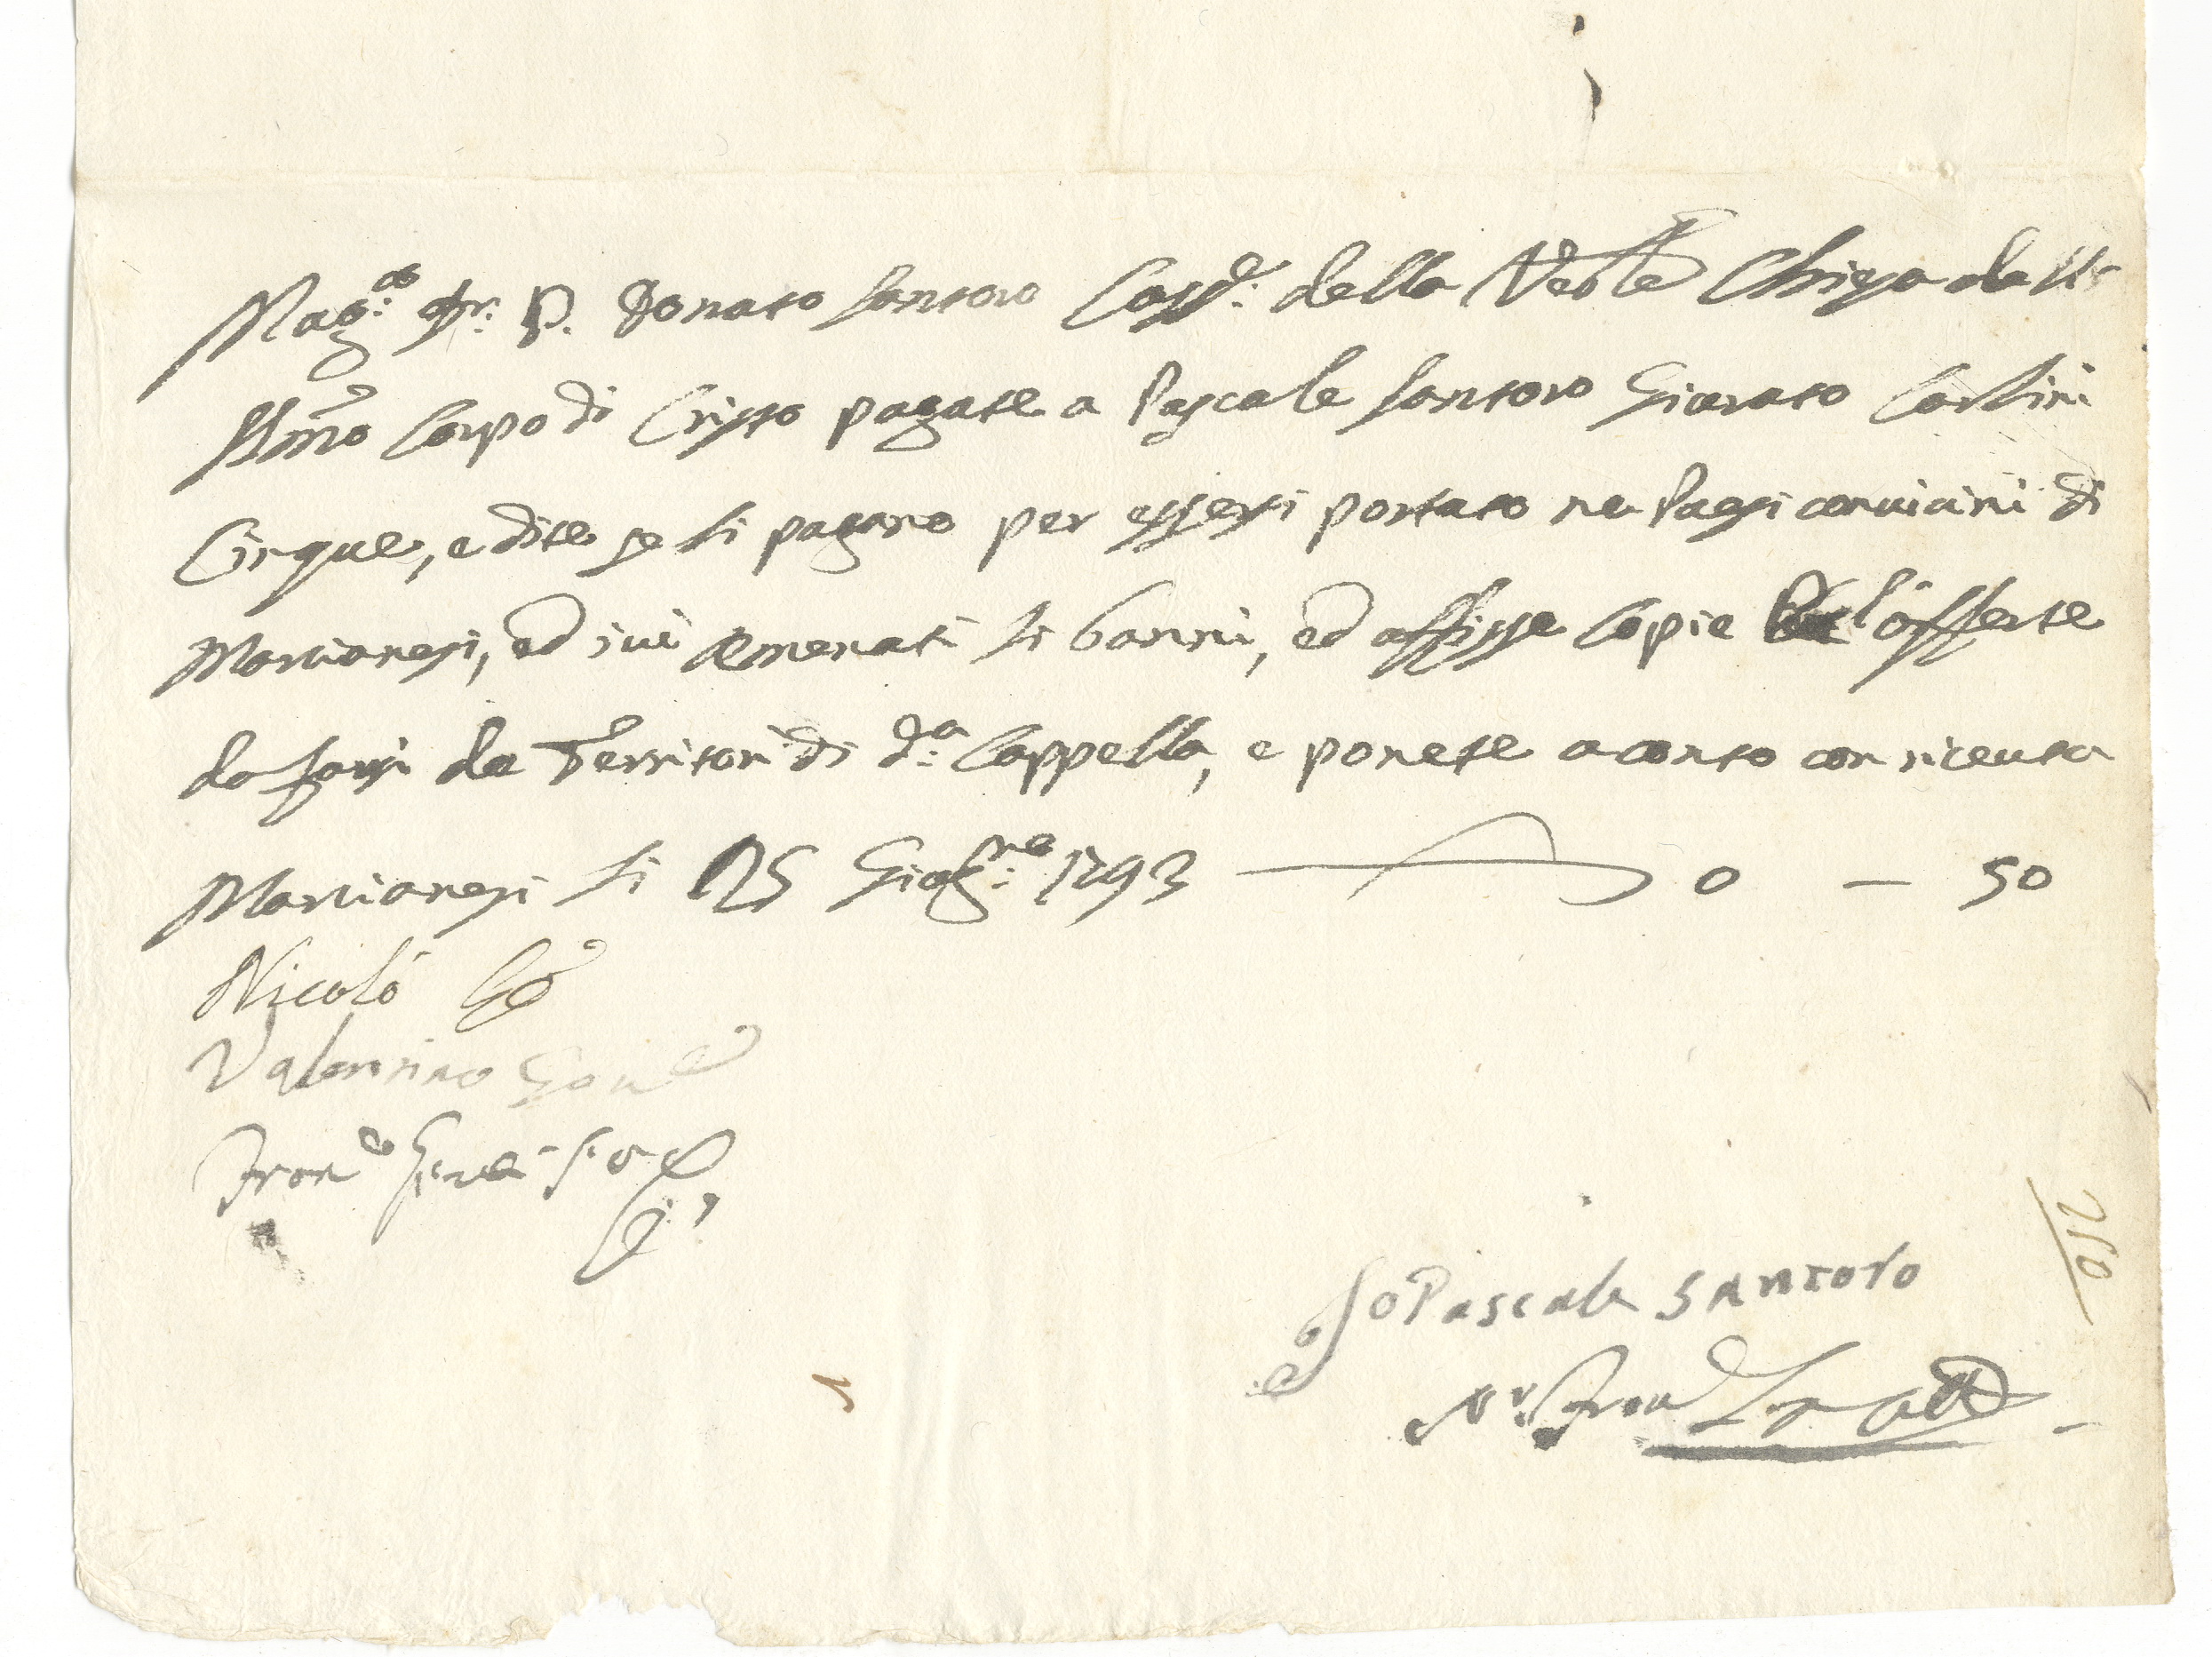 Mag:co Sr: D. Donato Santoro Cass.: della Ve:le Chiesa dell
SSmo Corpo di Cristo pagate a Pascale Santoro Giurato Carlini
Cinque, e dite se li pagano per essersi portato ne Paesi convicini di
Marcianesi, ed ivi emenati li banni, ed affisse copie l'offerte
da farsi de Territori di d:a Cappella, e ponete a conto con riceuta
Marcianesi li 25 Giug:no 1793 0 — 50
Nicolò
Valentino
Fran:co
Io Pascale Santoro
Nr. Fran
210